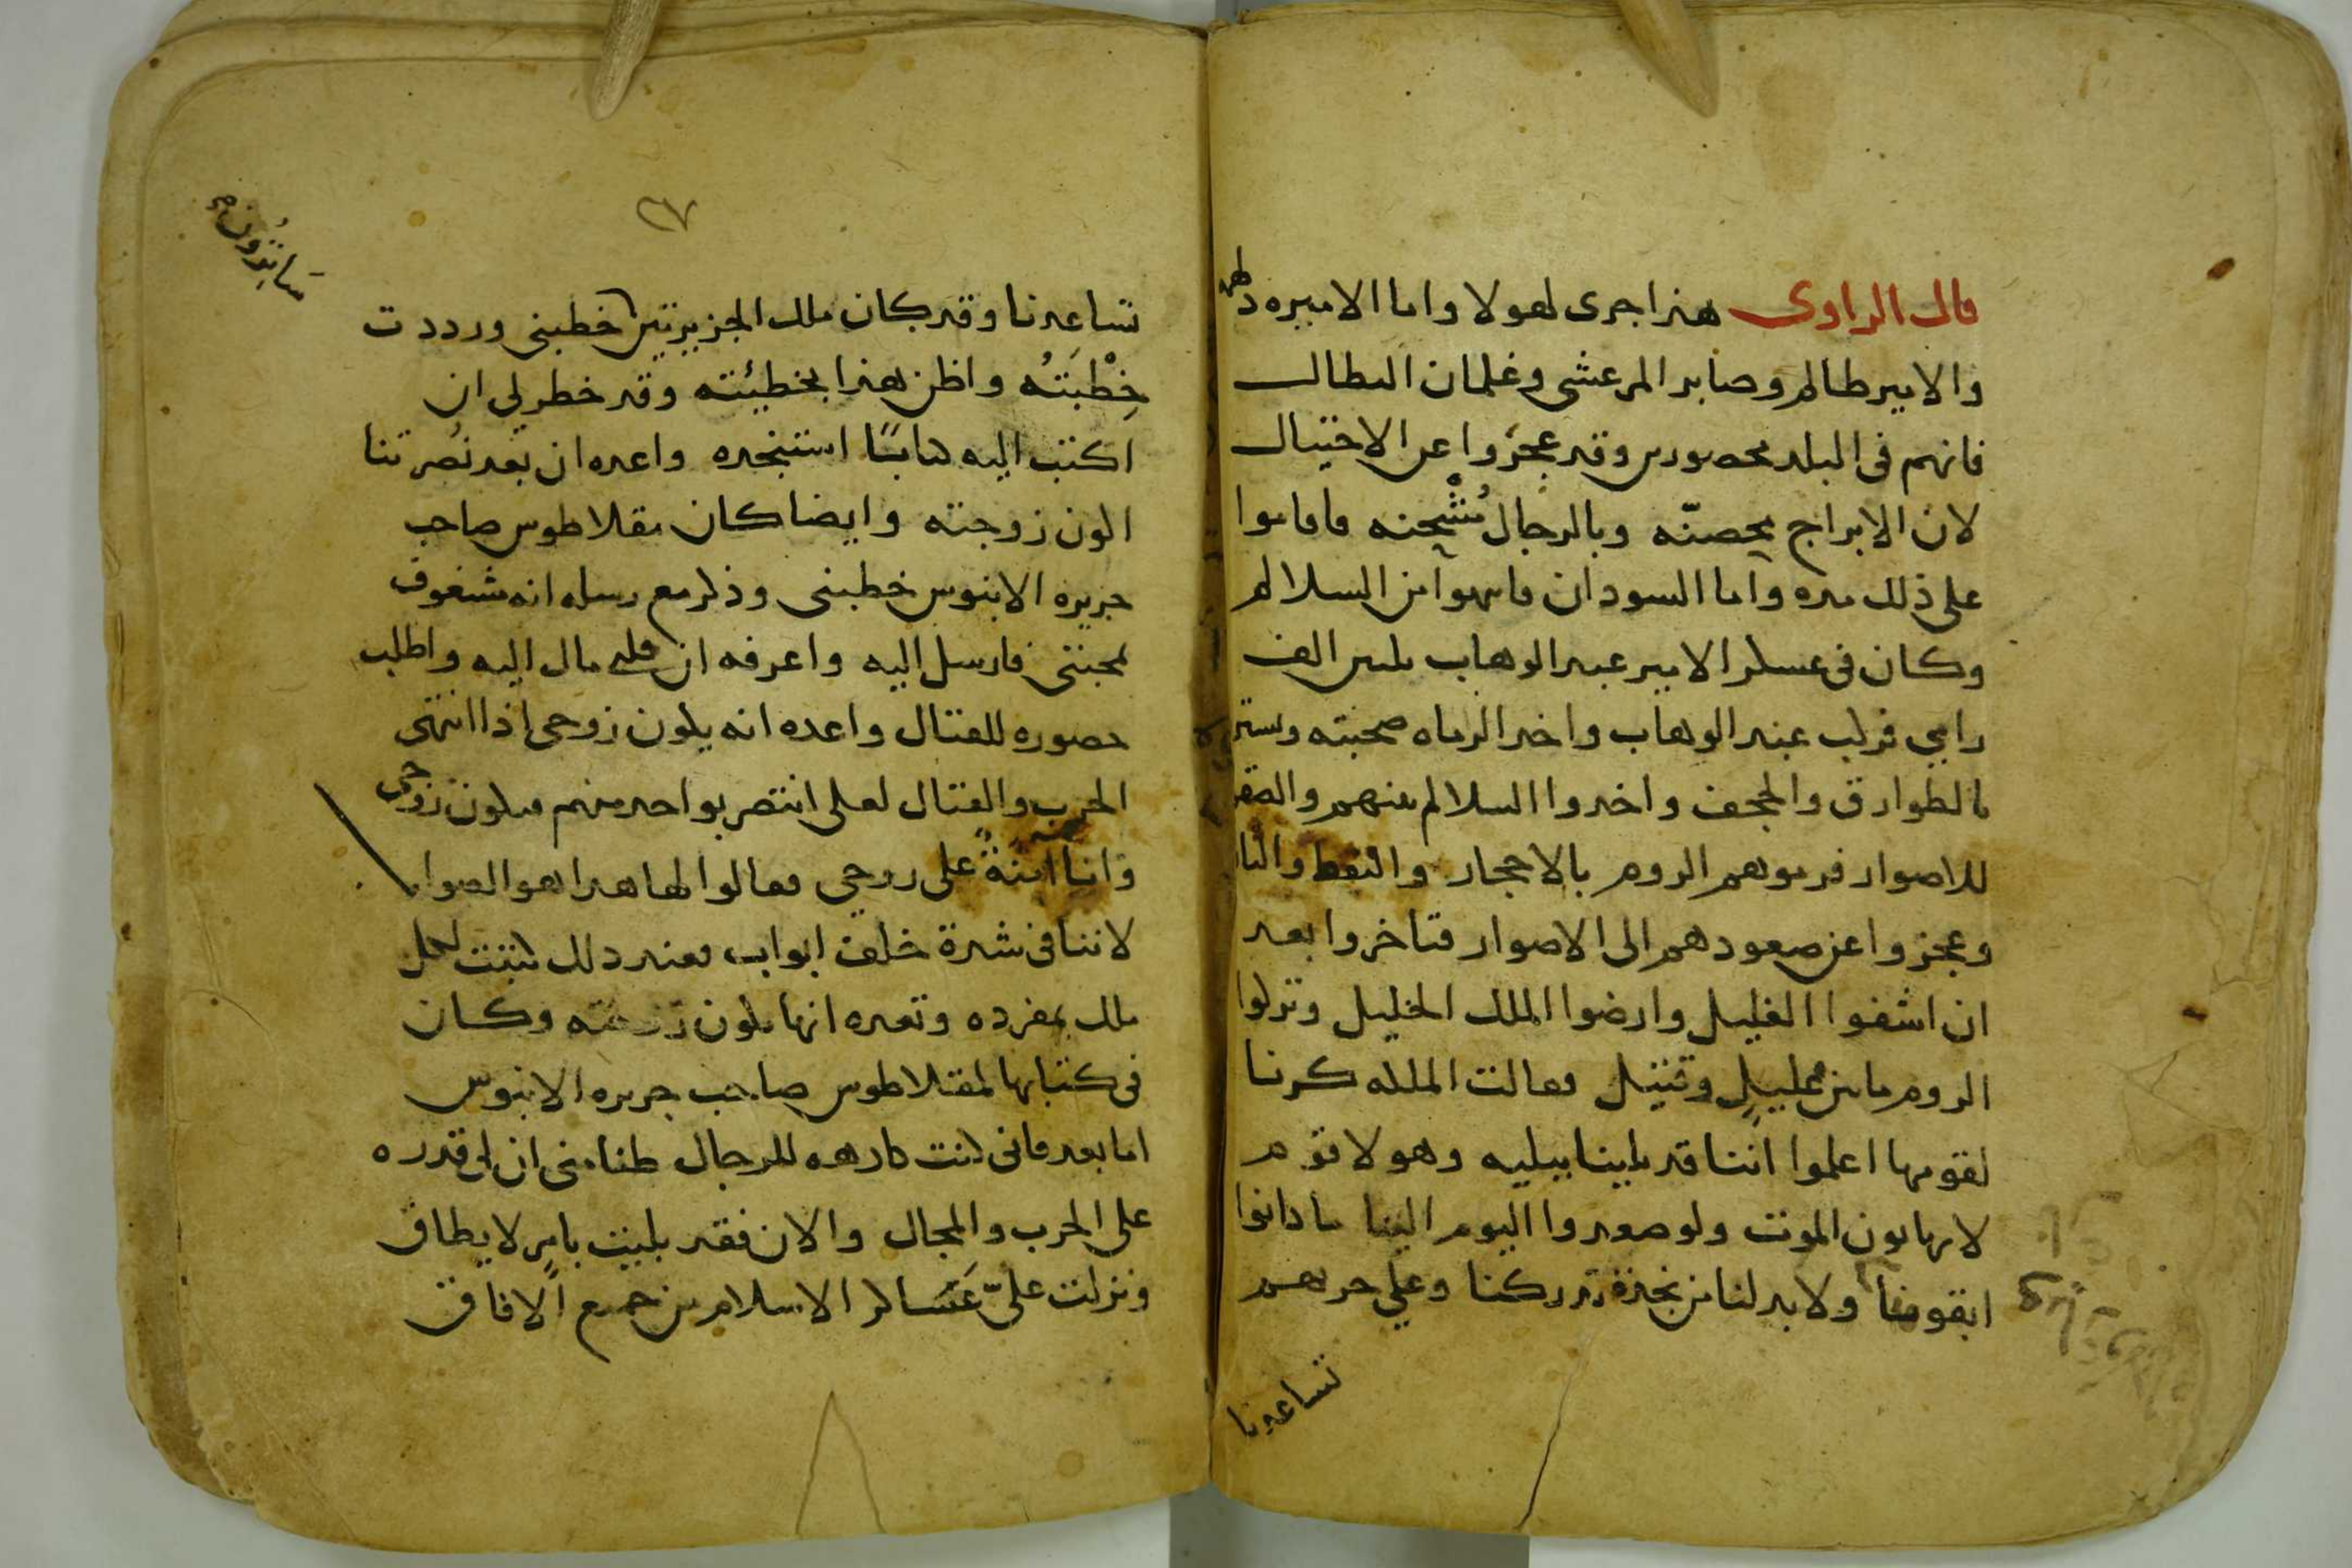 قال الراوى هذا جرى لهولا واما الاميره دلهمه
والامير ظالم وصابر المرعشى وغلمان البطال
فانهم فى البلد محصورين وقد عجزوا عن الاحتيال
لان الابراج محصنّه وبالرجال مُشْحنه فاقاموا
على ذلك مده واما السودان فانهوا من السلالم
وكان فى عسكر الامير عبد الوهاب ثلثين الف
رامى فركب عبد الوهاب واخد الرماه صحبته وستر
بالطوارق والحجف واخدوا السلالم منهم والتصقوا
للاصوار فرموهم الروم بالاحجار والنفط والنار
وعجزوا عن صعودهم الى الاصوار فتاخروا بعد
ان اشفوا الغليل وارضوا الملك الجليل وتركوا
الروم مابين وقتيل فقالت الملكه كرنا
لقومها اعلموا اننا قد بلينا ببليه وهولا قوم
لا يهابون الموت ولو صعدوا اليوم الينا ما كانوا
ابقونا ولابد لنا من نجدة تدركنا وعلى حربهم
تساعدنا
٢٧
تساعدنا وقد كان ملك الجزيرتين خطبنى ورددت
خِطْبَتُه واظن هذا بخطيئته وقد خطر لى ان
اكتب اليه كتابًا استنجده واعده ان بعد نُصرتنا
اكون زوجته وايضا كان مقلاطوس صاحب
جزيره الابنوس خطبنى وذكر مع رسله انه شغوف
بمحبتى فارسل اليه واعرفه ان قلبى مال اليه واطلب
حضوره للقتال واعده انه يكون زوجى اذا انتهى
الحرب والقتال لعلى انتصر بواحد منهم فيكون زوجى
وانا آمنةً على روحى فقالوا لها هدا هو الصواب
لاننا فى شدة خلف ابواب فعند دلك كتبت لكل
ملك بمفرده وتعده انها تكون زوجته وكان
فى كتابها لمقلاطوس صاحب جزيره الابنوس
اما بعد فانى كنت كارهه للرجال ظنا منى ان لى قدره
على الحرب والمجال والان فقد بليت بامرٍ لا يطاق
ونزلت علىّ عَسَاكر الاسلام من جميع الافاق